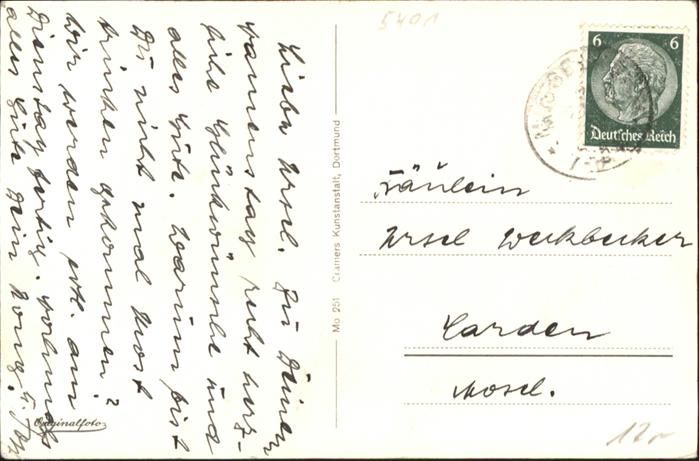 5401
Liebe Ursel. Zu Deinem
Namenstag recht herz-
liche Glückwünsche und
alles Gute. Warum bist
Du nicht mal Most
trinken gekommen?
Wir werden evtl. am
Dienstag fertig. Nochmals
alles Gute Dein
Originalfoto
Mo 251 Cramers Kunstanstalt, Dortmund
6 6
Deutsches Reich
Fräulein
Ursel Weckbecker
Carden
Mosel.
12